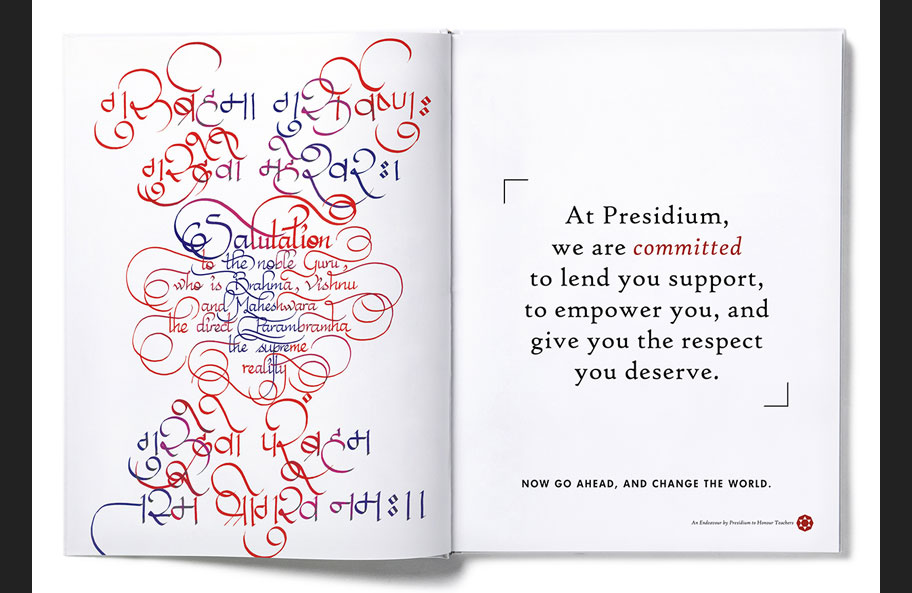 गुरुर्ब्रह्मा गुरुर्विष्णुः
गुरुर्देवो महेश्वरः।
Salutation
to the noble Guru,
who is Brahma, Vishnu
and Maheshwara
the direct Parambramha
the supreme
reality
गुरुर्देवो परंब्रह्म
तस्मै श्रीगुरवे नमः।।
At Presidium,
we are committed
to lend you support,
to empower you, and
give you the respect
you deserve.
NOW GO AHEAD, AND CHANGE THE WORLD.
An Endeavour by Presidium to Honour Teachers